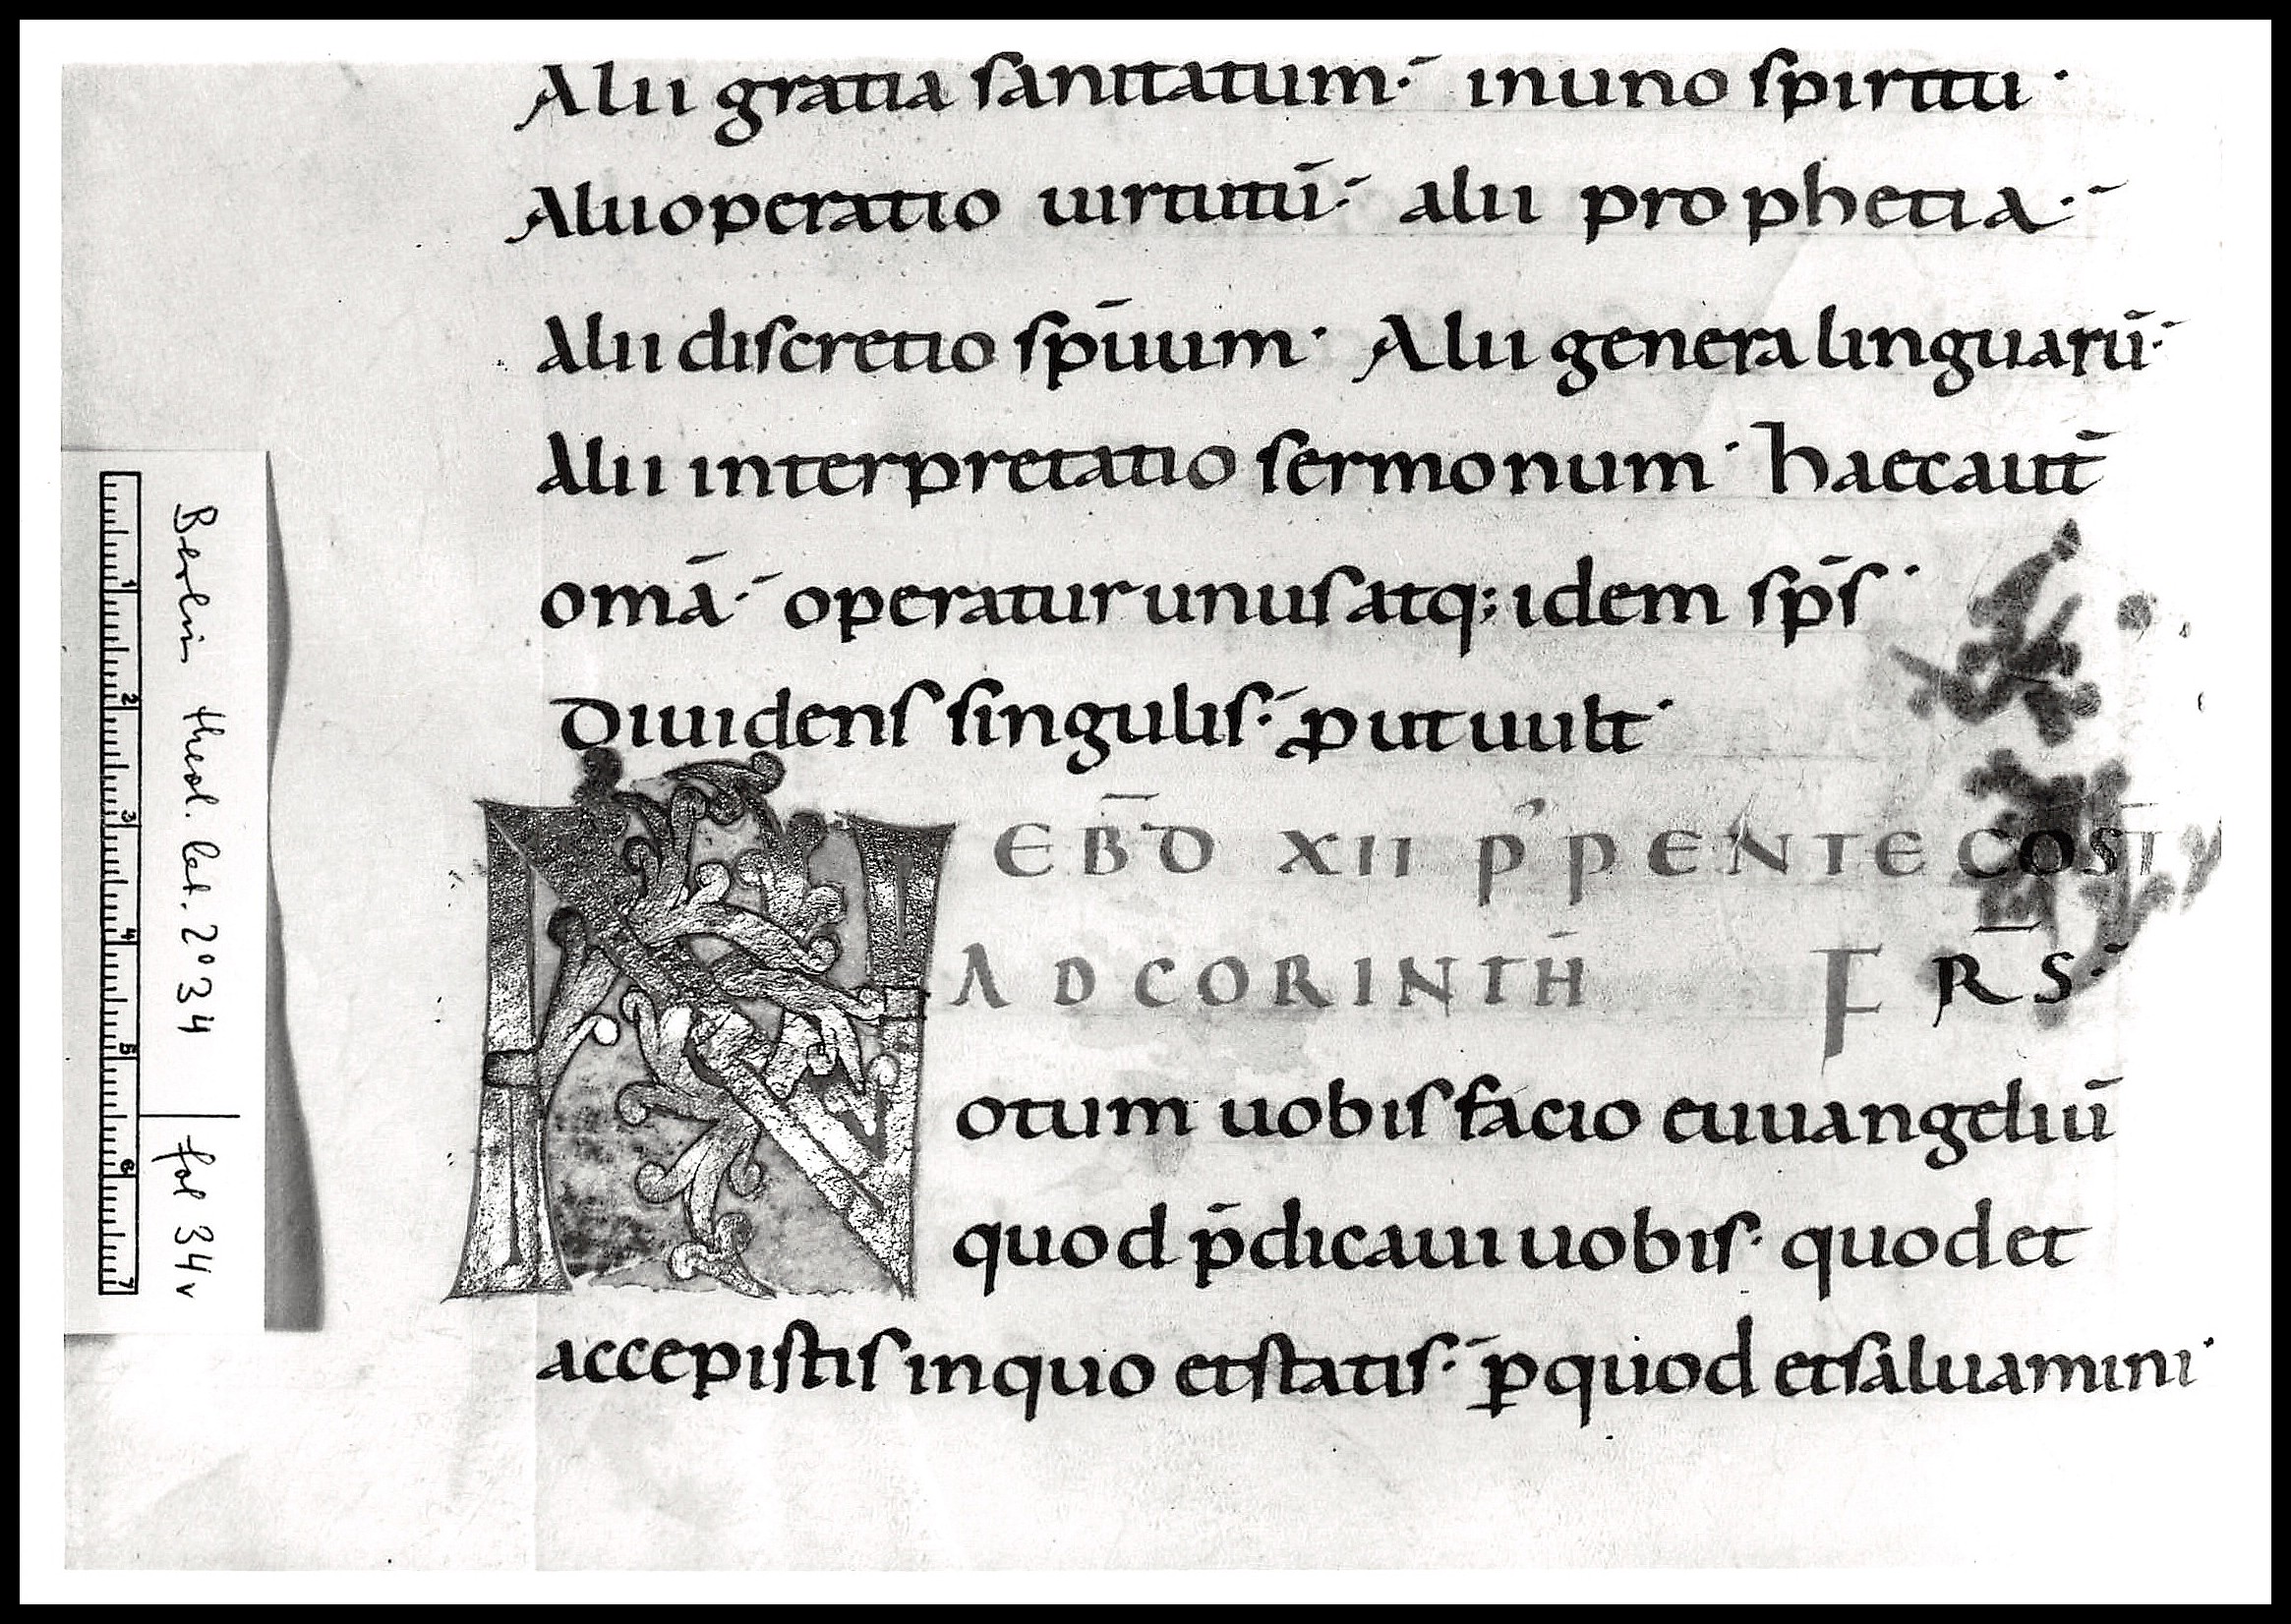 Alii gratia sanitatum· inuno spiritu·
Aliioperatio uirtutū· alii prophetia·
alii discretio sp̄uum· Alii genera linguarū·
alii interpretatio sermonum· haecaut̄
omā· operatur unus atq; idem sp̄s·
Diuidens singulis· ꝓut uult·
EBD̄ XII p' PENTECOST
N AD CORINTH̄ F RS̄·
otum uobis facio euuangeliū
quod p̄dicaui uobis· quod et
accepistis inquo et statis· ꝑ quod et saluamini·
Berlin theol. lat. 2° 34 | fol 34v
1 2 3 4 5 6 7